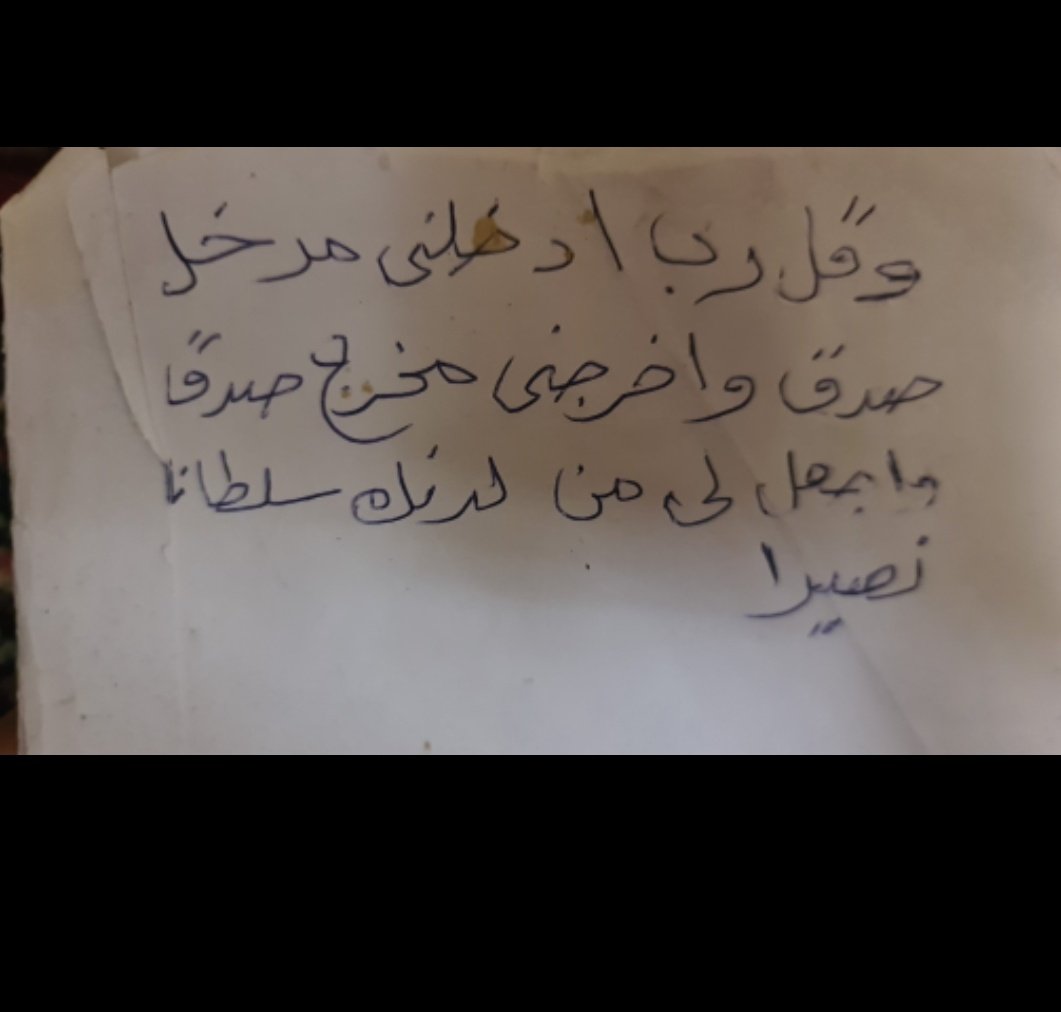 وقل رب ادخلنى مدخل
صدق واخرجنى مخرج صدق
واجعل لى من لدنك سلطانا
نصيرا